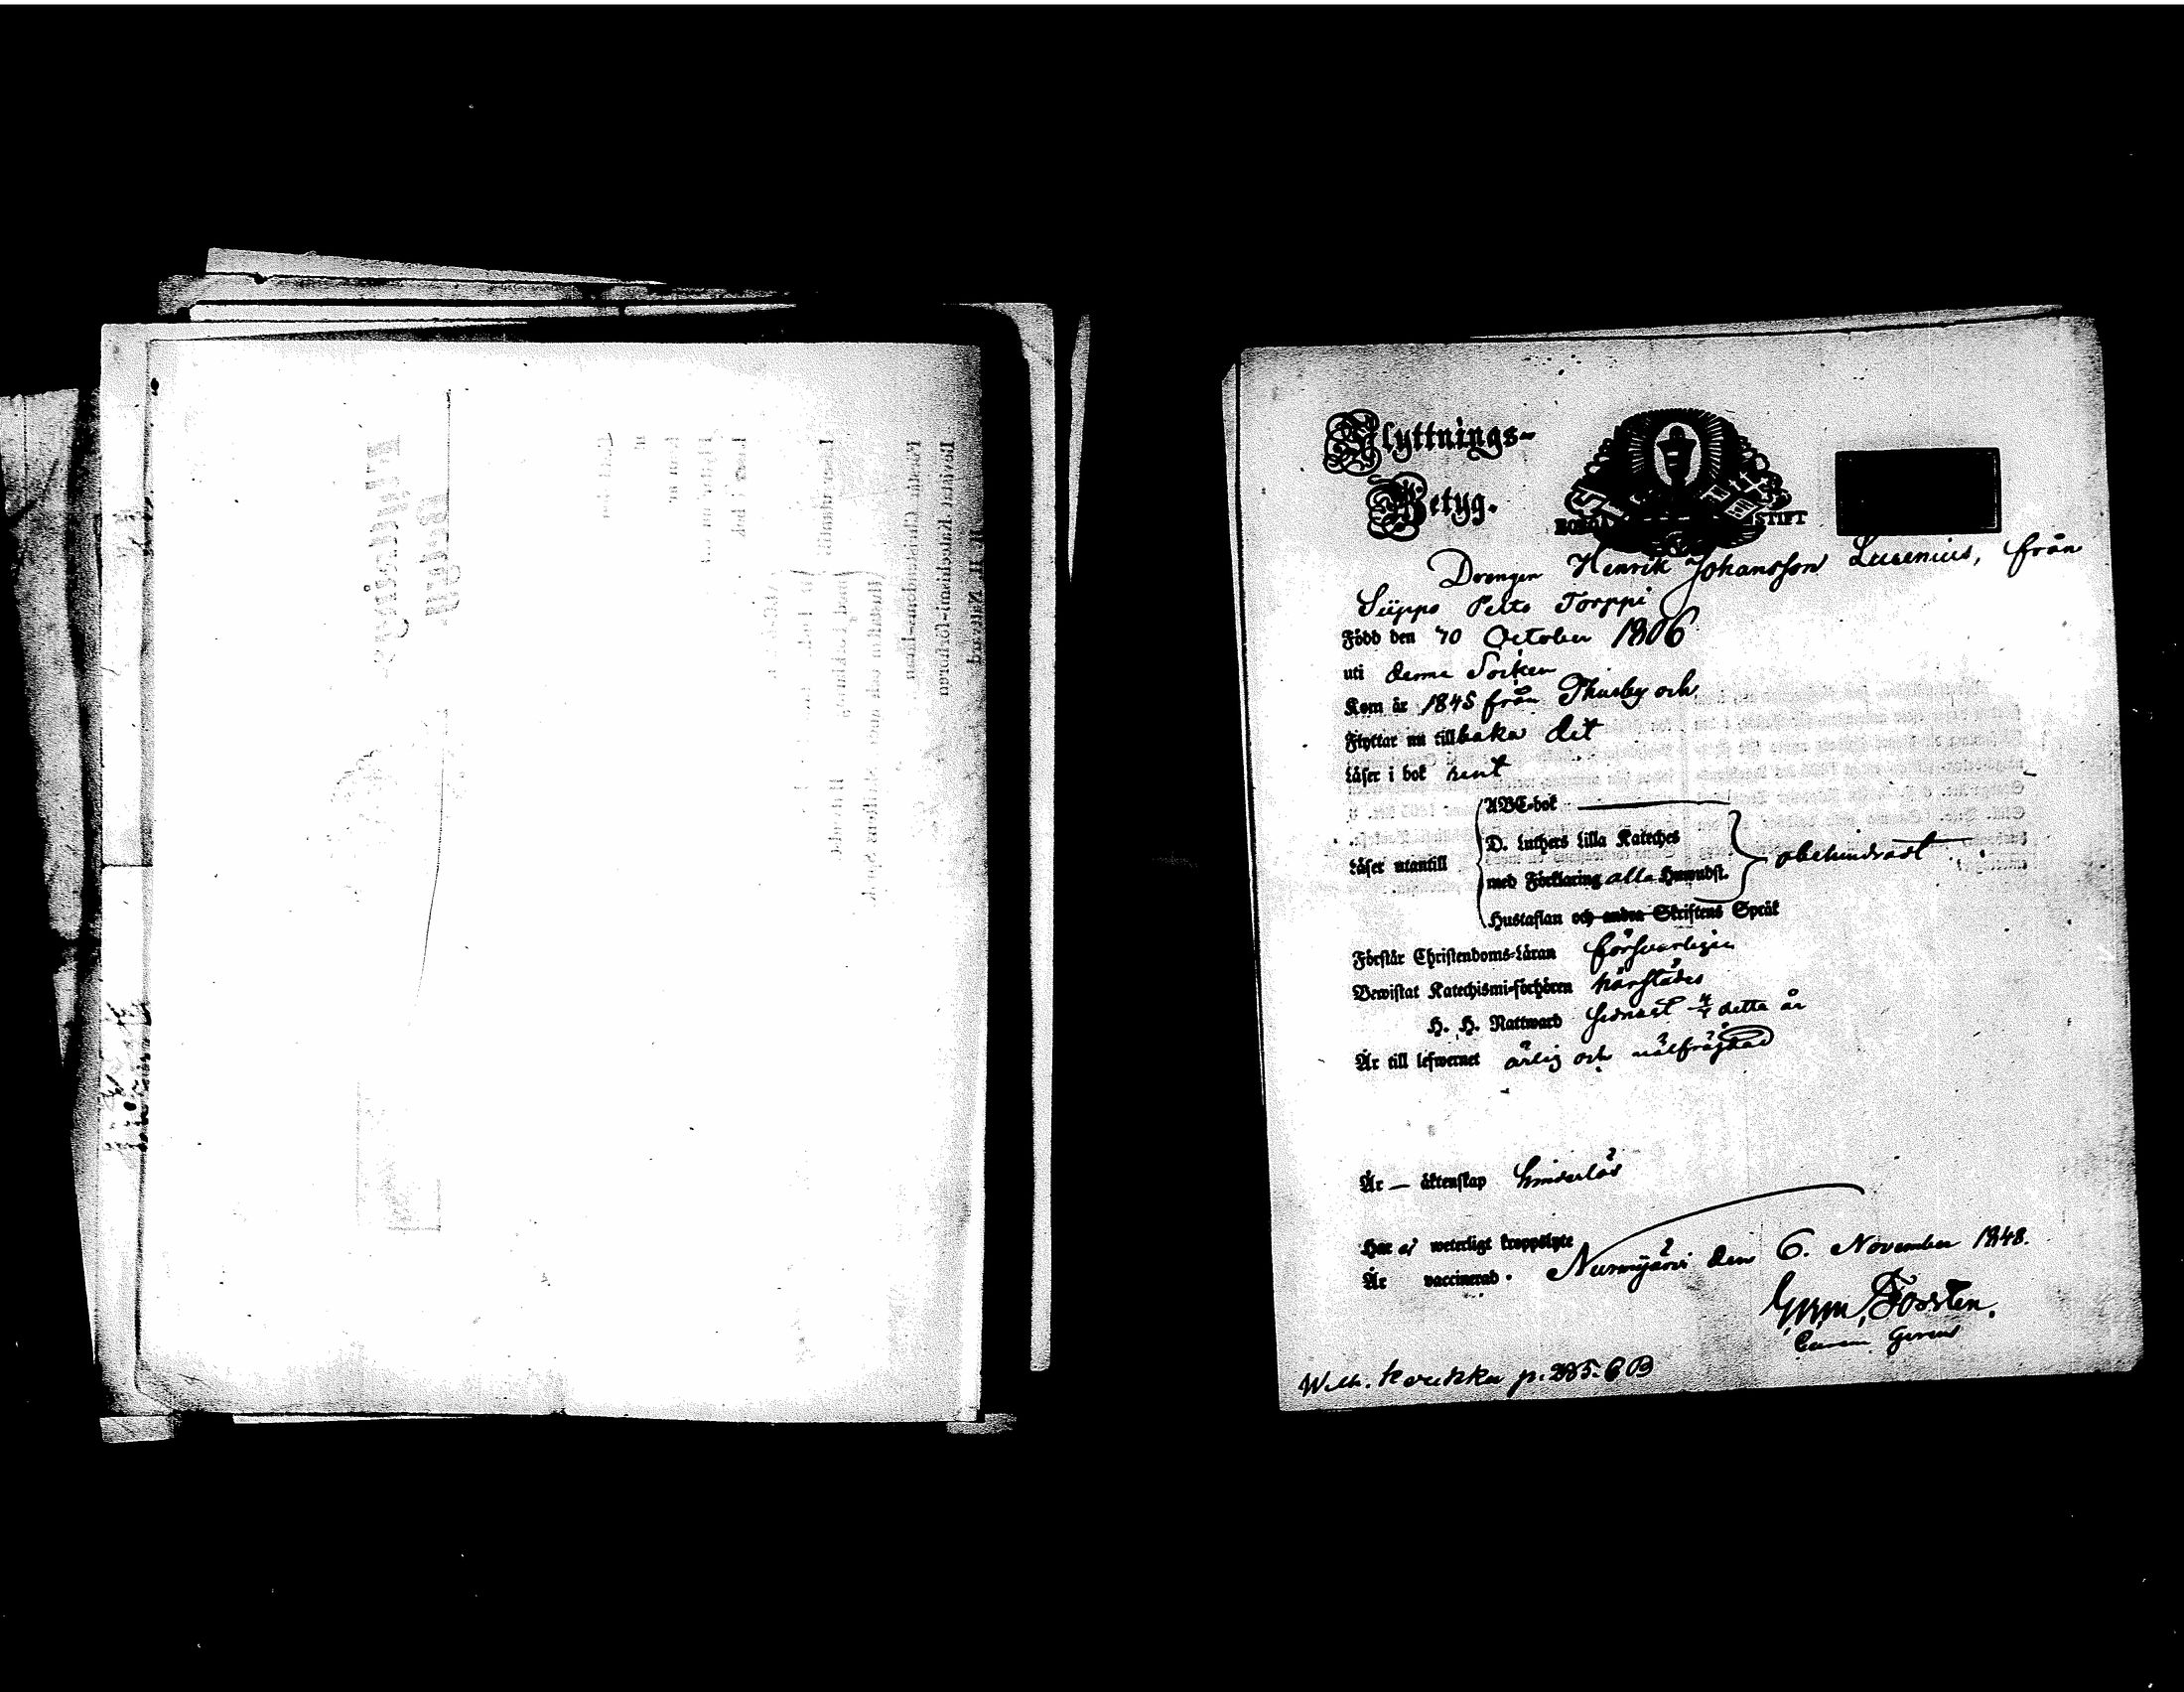 Flyttnings-
Betyg.
BORGÅ STIFT
Drengen Henrik Johansson Lucenius, från
Siippo Pelto Torppi
Född den 10 October 1806
uti denna Socken
Kom år 1845 från Thusby och
Flyttar nu tillbaka dit
Läser i bok rent
Läser utantill
ABC-bok
D. Luthers Lilla Kateches
med Förklaring alla Huwudst.
Hustaflan och andra Skriftens Språk
obehindradt
Förstår Christendoms-Läran försvarligen
Bewistat Katechismi-förhören härstädes
H. H. Nattward sednast detta år
Är till lefwernet ärlig och välfräjdad
Är — äktenskap hinderlös
Har ej weterligt kroppslyte
Är vaccinerad. Nurmijärvi den 6. November 1848.
Forstén.
Wilh. p. 285. 6 B